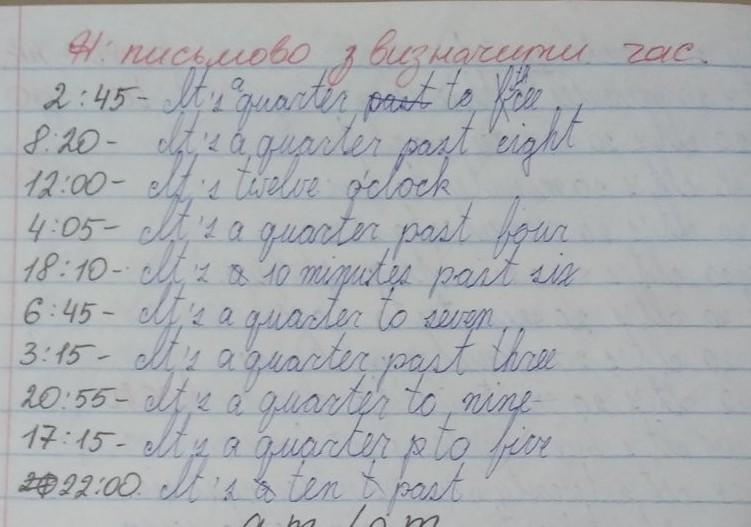 H: письмово з визначити час.
2:45- It's a quarter past to three
8:20- It's a quarter past eight
12:00- It's twelve o'clock
4:05- It's a quarter past four
18:10- It's a 10 minutes past six
6:45- It's a quarter to seven
3:15- It's a quarter past three
20:55- It's a quarter to nine
17:15- It's a quarter p to five
22:00. It's a ten t past
a.m. / p.m.